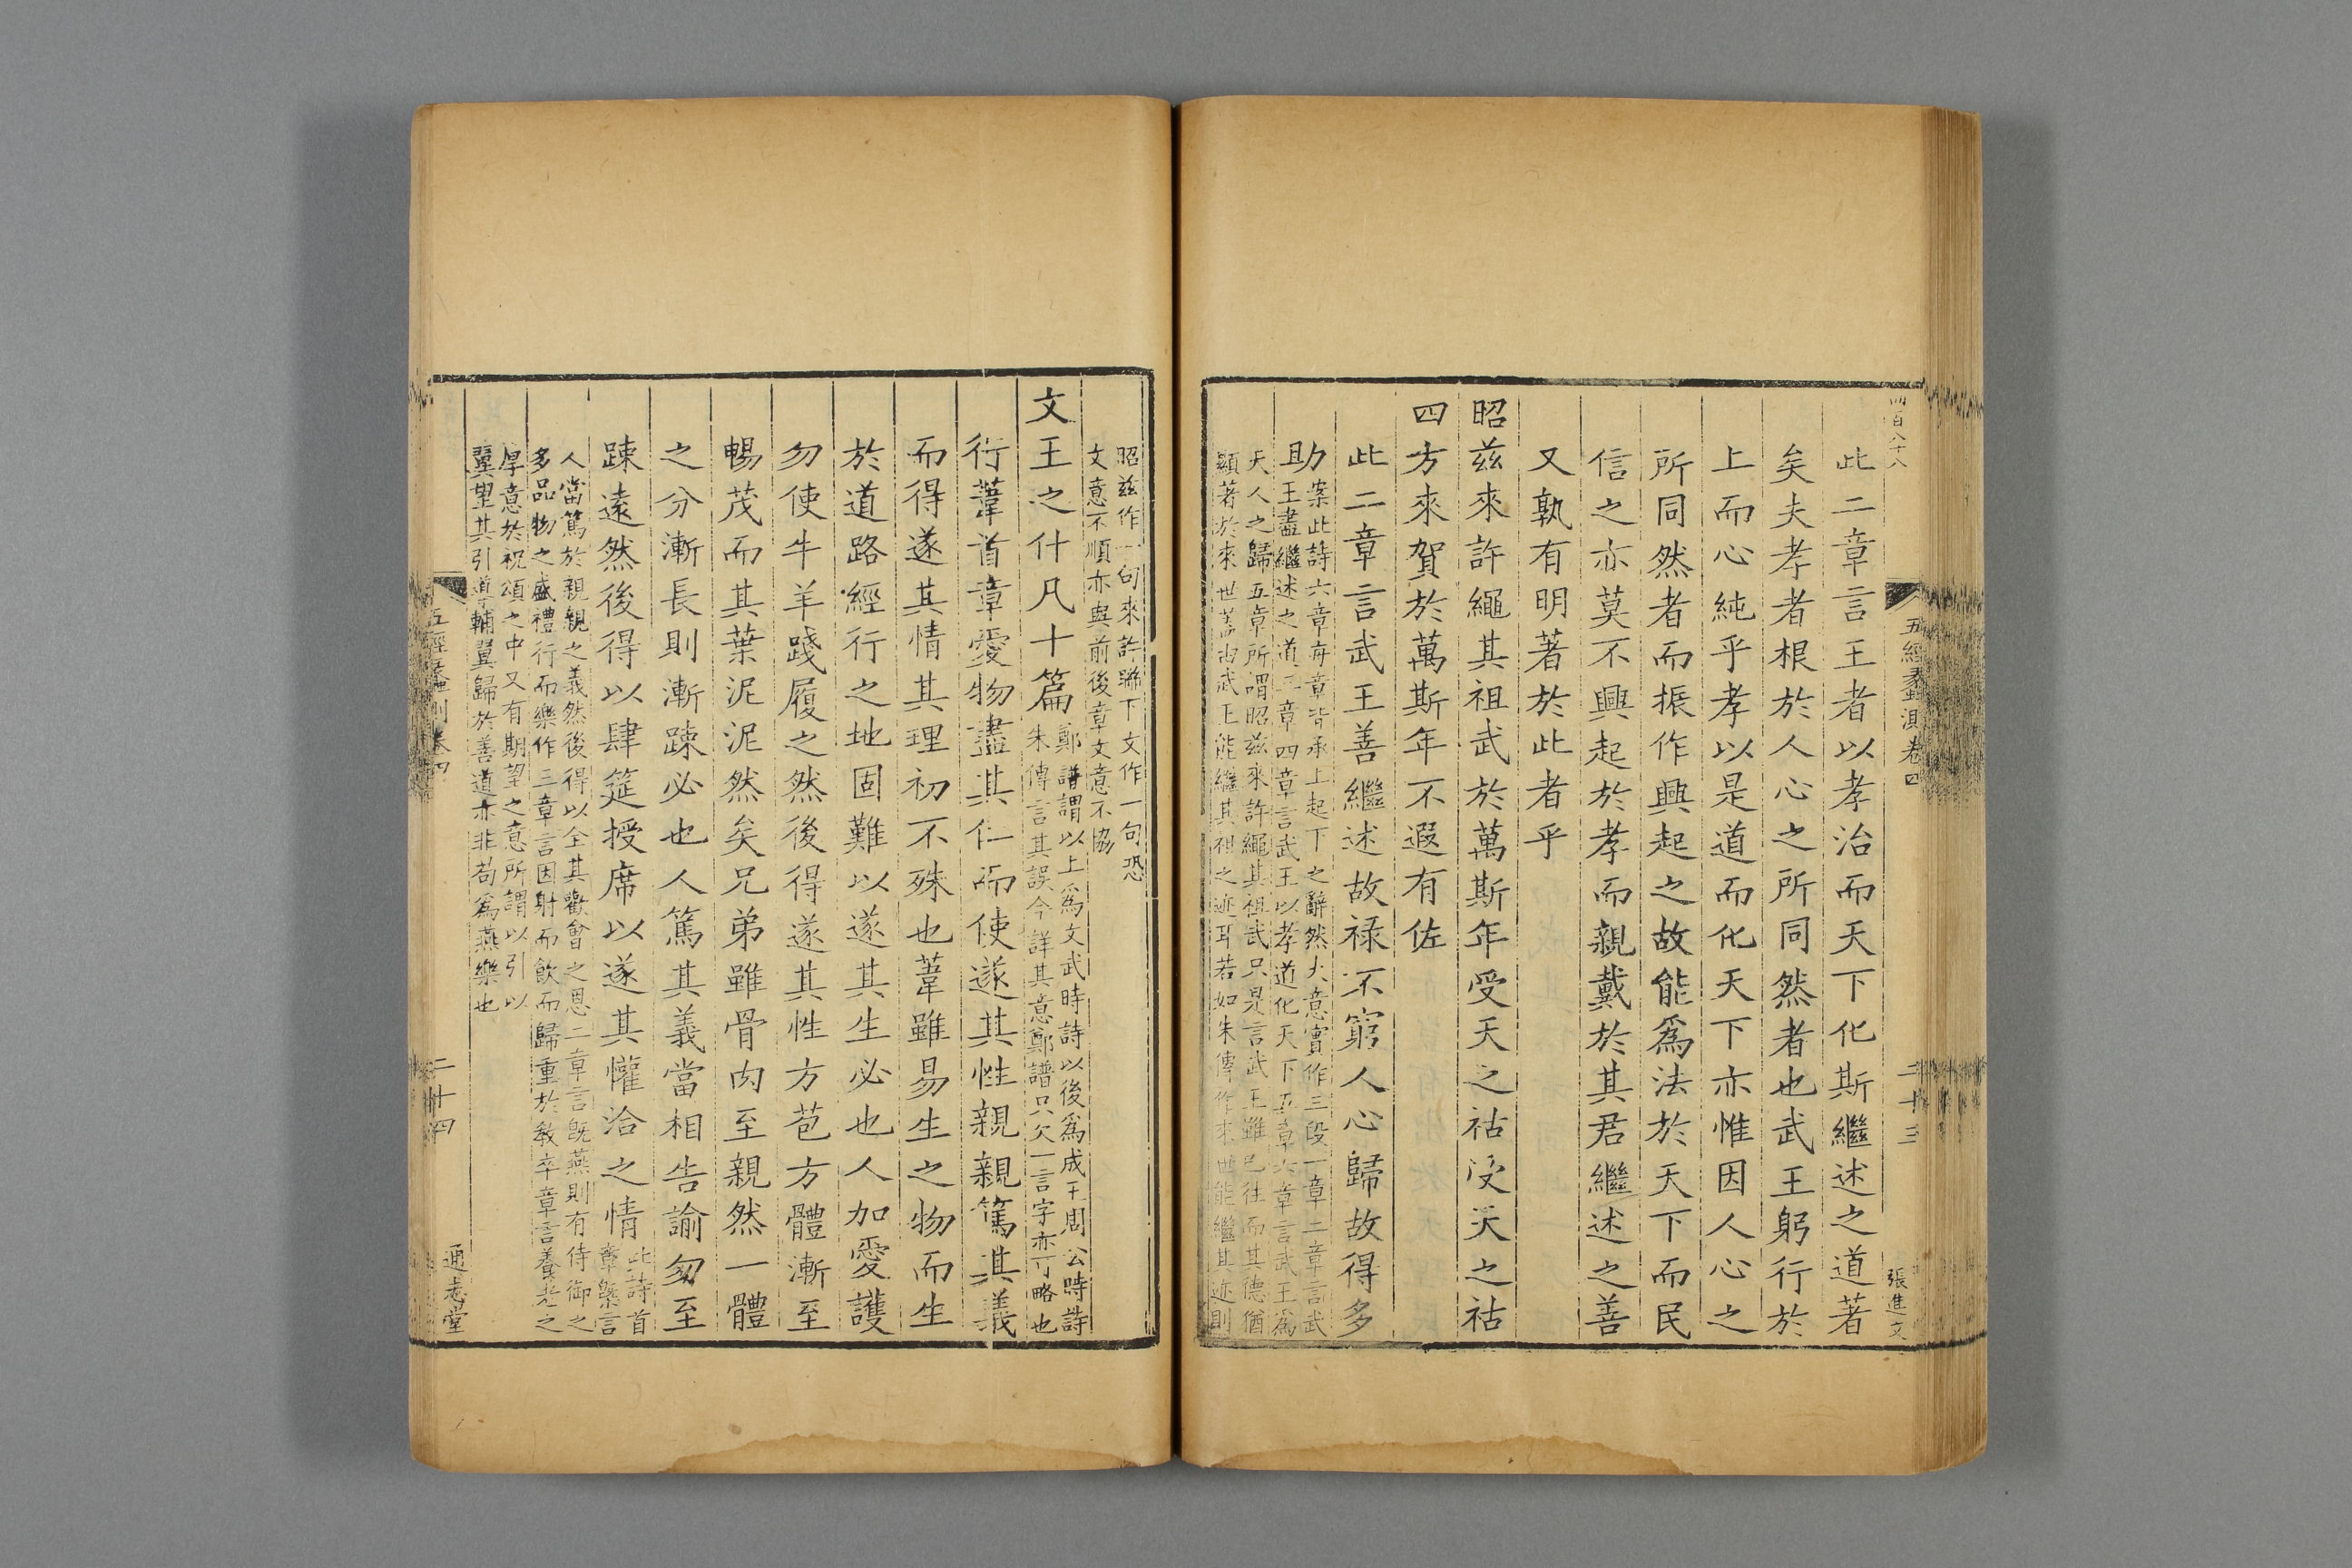 四百八十八
五經蠡測卷四
二十三
張進文
此二章言王者以孝治而天下化斯繼述之道著
矣夫孝者根於人心之所同然者也武王躬行於
上而心純乎孝以是道而化天下亦惟因人心之
所同然者而振作興起之故能爲法於天下而民
信之亦莫不興起於孝而親戴於其君繼述之善
又孰有明著於此者乎
昭兹來許繩其祖武於萬斯年受天之祜受天之祜
四方來賀於萬斯年不遐有佐
此二章言武王善繼述故祿不窮人心歸故得多
助
案此詩六章每章皆承上起下之辭然大意實作三段一章二章言武
王盡繼述之道三章四章言武王以孝道化天下五章六章言武王爲
天人之歸五章所謂昭兹來許繩其祖武只是言武王雖已往而其德猶
顯著於來世蓋由武王能繼其祖之迹耳若如朱傳作來世能繼其迹則
昭兹作一句來許聯下文作一句恐
文意不順亦與前後章文意不協
文王之什凡十篇
鄭譜謂以上爲文武時詩以後爲成王周公時詩
朱傳言其誤今詳其意鄭譜只欠一言字亦可略也
行葦首章愛物盡其仁而使遂其性親親篤其義
而得遂其情其理初不殊也葦雖易生之物而生
於道路經行之地固難以遂其生必也人加愛護
勿使牛羊踐履之然後得遂其性方苞方體漸至
暢茂而其葉泥泥然矣兄弟雖骨肉至親然一體
之分漸長則漸踈必也人篤其義當相告諭勿至
踈遠然後得以肆筵授席以遂其懽洽之情
此詩首
章槩言
人當篤於親親之義然後得以全其歡會之恩二章言旣燕則有侍御之
多品物之盛禮行而樂作三章言因射而飲而歸重於敎卒章言養老之
厚意於祝頌之中又有期望之意所謂以引以
翼望其引導輔翼歸於善道亦非苟爲燕樂也
五經蠡測卷四
二十四
通志堂